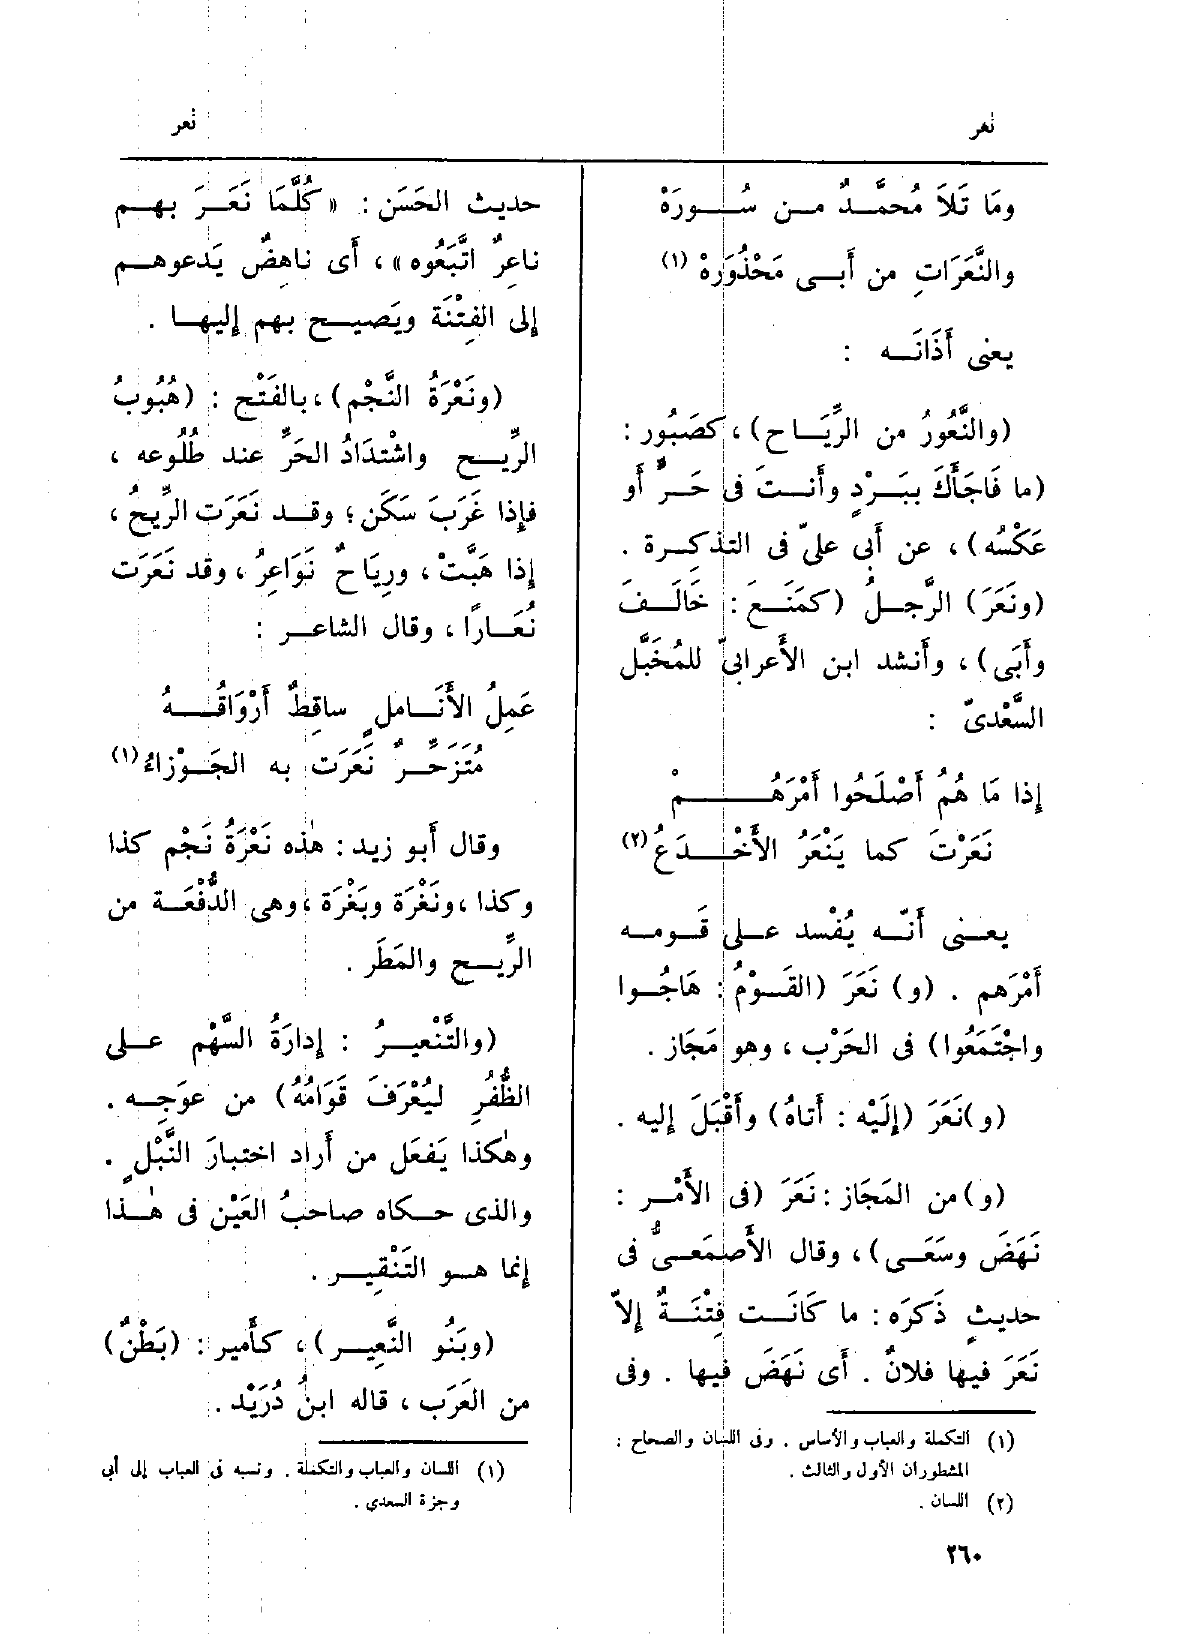 نعر
نعر
ومَا تَلاَ مُحمَّدٌ من سُورَهْ
والنَّعَرَاتِ من أَبى مَحْذُورَهْ (١)
يعنى أَذَانَه :
(والنَّعُورُ من الرِّيَاح) ، كصَبُور :
(ما فَاجَأَكَ ببَرْدٍ وأَنتَ فى حَرٍّ أَو
عَكْسُه) ، عن أَبى علىّ فى التذكِرة .
(ونَعَرَ) الرَّجلُ (كمَنَعَ : خَالَفَ
وأَبَى) ، وأَنشد ابن الأَعرابىّ للمُخَبَّل
السَّعْدىّ :
إذا مَا هُمُ أَصْلَحُوا أَمْرَهُمْ
نَعَرْتَ كما يَنْعَرُ الأَخْدَعُ (٢)
يعنى أَنّه يُفْسد على قَومه
أَمْرَهم . (و) نَعَرَ (القَوْمُ : هَاجُوا
واجْتَمَعُوا) فى الحَرْب ، وهو مَجَاز .
(و) نَعَرَ (إلَيْه : أَتاهُ) وأَقْبَلَ إليه .
(و) من المَجَاز : نَعَرَ (فى الأَمْر :
نَهَضَ وسَعَى) ، وقال الأَصمَعىُّ فى
حديثٍ ذَكرَه : ما كَانَت فِتْنَةٌ إلاّ
نَعَرَ فيها فلانٌ . أَى نَهَضَ فيها . وفى
(١) التكملة والعباب والأساس . وفى اللسان والصحاح :
المشطوران الأول والثالث .
(٢) اللسان .
حديث الحَسَن : « كُلَّمَا نَعَرَ بهم
ناعِرٌ اتَّبَعُوه » ، أَى ناهِضٌ يَدعوهم
إلى الفِتْنَة ويَصيح بهم إليها .
(ونَعْرَةُ النَّجْم) ، بالفَتْح : (هُبُوبُ
الرِّيح واشْتدَادُ الحَرِّ عند طُلُوعه ،
فإذا غَرَبَ سَكَن ؛ وقد نَعَرَت الرِّيحُ ،
إذا هَبَّتْ ، ورِيَاحٌ نَوَاعِرُ ، وقد نَعَرَت
نُعَارًا ، وقال الشاعر :
عَمِلُ الأَنَاملِ ساقِطٌ أَرْوَاقُهُ
مُتَزَحِّرٌ نَعَرَت به الجَوْزاءُ (١)
وقال أَبو زيد : هٰذه نَعْرَةُ نَجْم كذا
وكذا ، ونَغْرَة وبَغْرَة ، وهى الدُّفْعَة من
الرِّيح والمَطَر .
(والتَّنْعيرُ : إدارَةُ السَّهْم على
الظُّفُرِ ليُعْرَفَ قَوَامُهُ) من عوَجِه .
وهٰكذا يَفعَل من أَراد اختبارَ النَّبْلِ .
والذى حكاه صاحبُ العَيْن فى هٰذا
إنما هو التَنْقِير .
(وبَنُو النَّعِير) ، كأَمير : (بَطْنٌ)
من العَرَب ، قاله ابنُ دُرَيْد .
(١) اللسان والعباب والتكملة . ونسبه فى العباب إلى أبى
وجزة السعدي .
٢٦٠